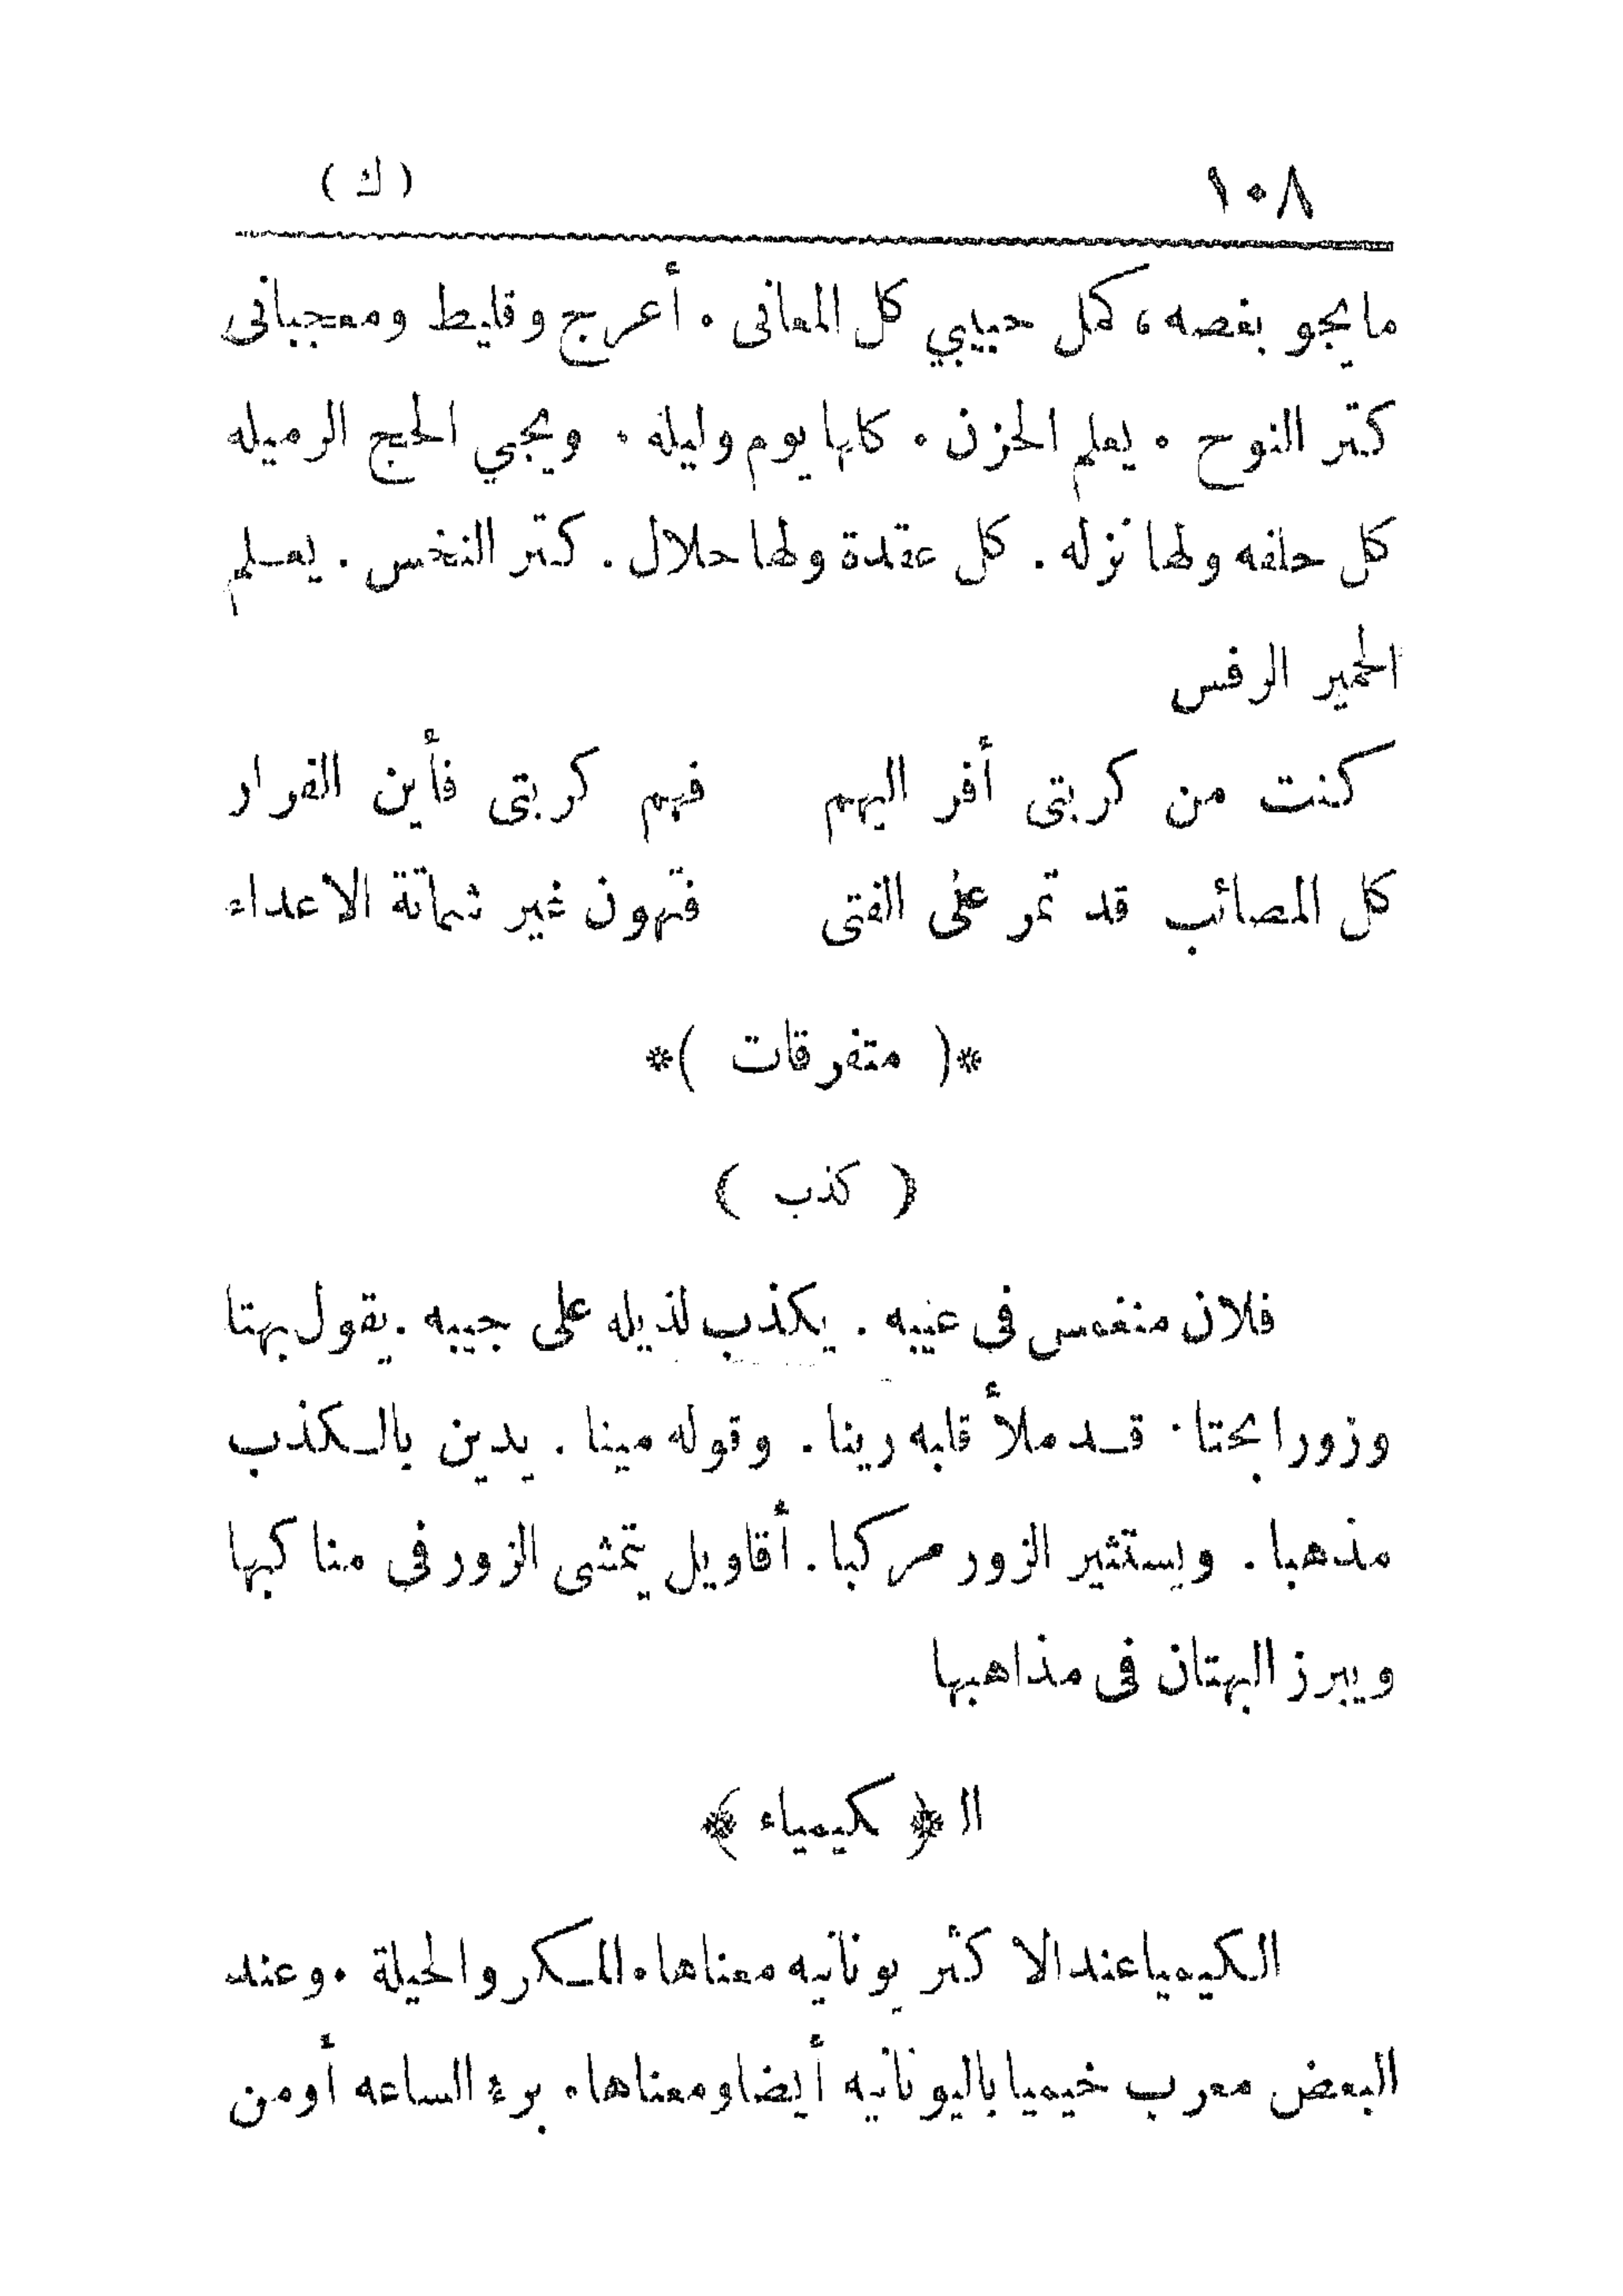 ١٠٨ ( ك )
ما يجو بغصه ، كمل حبيبي كل المعانى . أعرج وقليط ومعجبانى
كتر النوح . يعلم الحزن . كلها يوم وليله . ويجي الحج الرميله
كل حلفه ولها نزله . كل عقدة ولها حلال . كتر النخس . يعلم
الحمير الرفس
كنت من كربتى أفر اليهم فهم كربتى فأين الفرار
كل المصائب قد تمر على الفتى فتهون غير شماتة الاعداء
*( متفرقات )*
( كذب )
فلان منغمس فى عيبه . يكذب لذيله على جيبه . يقول بهتا
وزورا بحتا . قد ملأ قلبه رينا . وقوله مينا . يدين بالكذب
مذهبا . ويستثير الزور مركبا . أقاويل يتمشى الزور فى مناكبها
ويبرز البهتان فى مذاهبها
ال ﴿ كيمياء ﴾
الكيميا عند الاكثر يونانيه معناها . المكر والحيلة . وعند
البعض معرب خيميا باليونانيه أيضا ومعناها . برء الساعه أو من